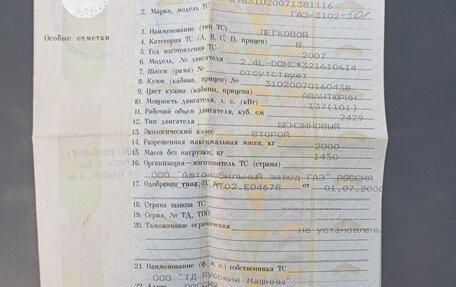 X7631020071381116
2. Марка, модель ТС ГАЗ-3102-501
Особые отметки
3. Наименование (тип ТС) ЛЕГКОВОЙ
4. Категория ТС (A, B, C, D, прицеп) B
5. Год изготовления ТС 2007
6. Модель, № двигателя 2.4L-DOHC*321610614
7. Шасси (рама) № отсутствует
8. Кузов (кабина, прицеп) № 31020070160438
9. Цвет кузова (кабины, прицепа) АВАНТЮРИН
10. Мощность двигателя, л. с. (кВт) 137(101)
11. Рабочий объем двигателя, куб. см 2429
12. Тип двигателя БЕНЗИНОВЫЙ
13. Экологический класс ВТОРОЙ
14. Разрешенная максимальная масса, кг 2000
15. Масса без нагрузки, кг 1450
16. Организация—изготовитель ТС (страна)
ООО "Автомобильный завод ГАЗ" РОССИЯ
17. Одобрение типа ТС № МТ02.Е04678 от 01.07.2006
18. Страна вывоза ТС
19. Серия, № ТД, ТПО
20. Таможенные ограничения
не установлены
21. Наименование (ф. и. о.) собственника ТС
ООО "ТД Русские Машины"
22. Адрес РОССИЯ